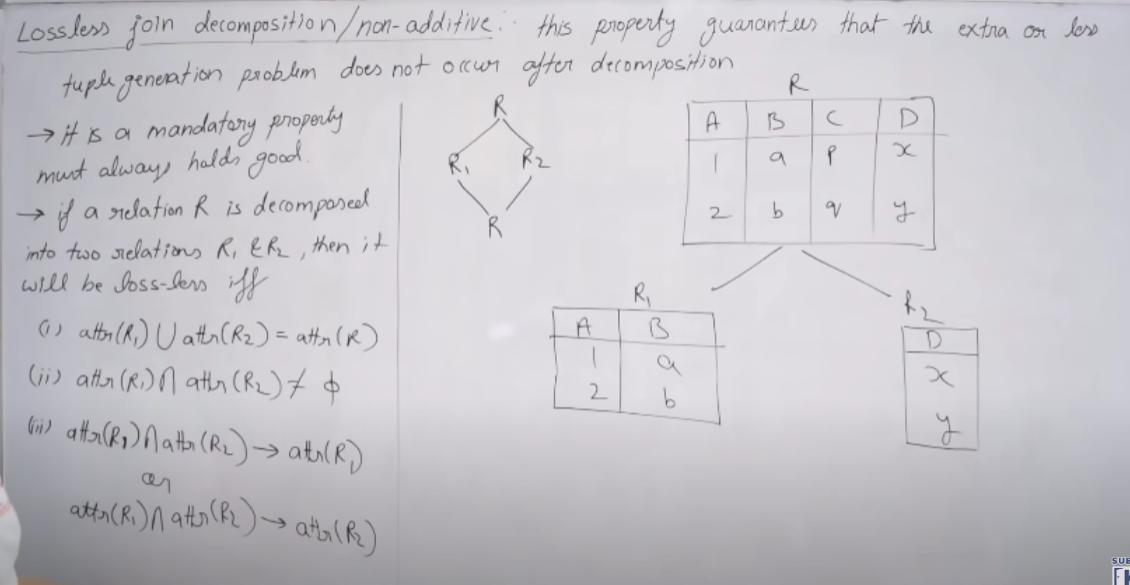 Lossless join decomposition/non-additive: this property guarantees that the extra or less
tuple generation problem does not occur after decomposition
→ it is a mandatory property
must always holds good.
→ if a relation R is decomposed
into two relations R1 & R2, then it
will be loss-less iff
(i) attr(R1) ∪ attr(R2) = attr(R)
(ii) attr(R1) ∩ attr(R2) ≠ ϕ
(iii) attr(R1) ∩ attr(R2) → attr(R1)
or
attr(R1) ∩ attr(R2) → attr(R2)
R
R1 R2
R
R
A B C D
1 a p x
2 b q y
R1
A B
1 a
2 b
R2
D
x
y
SUB